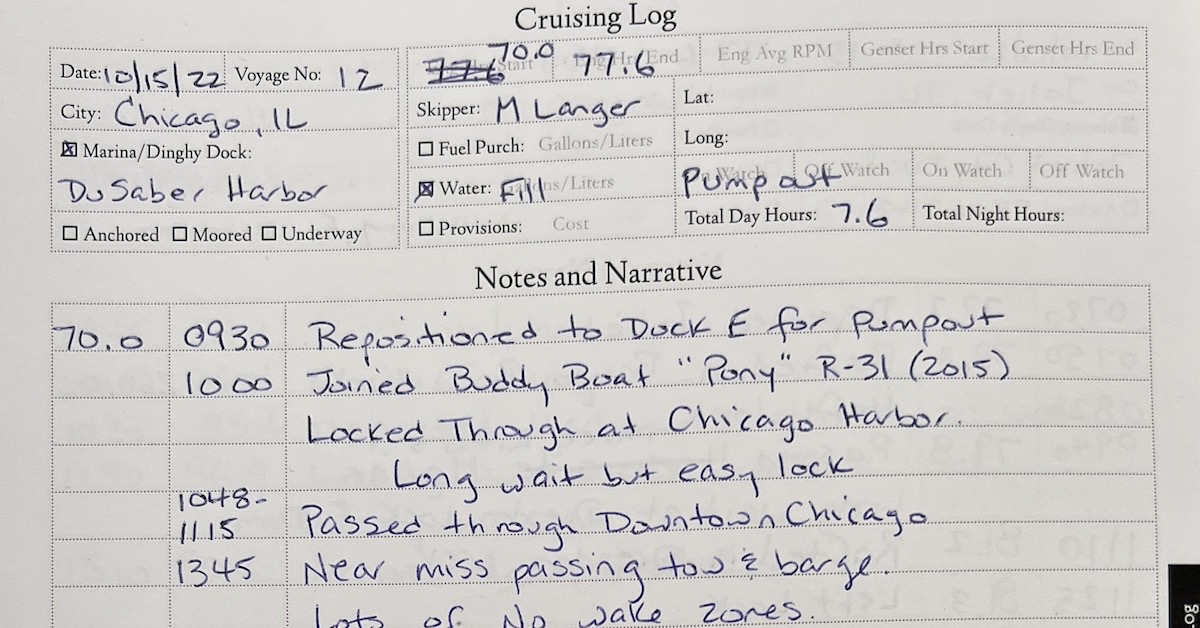 Cruising Log
Date: 10/15/22 Voyage No: 12
City: Chicago, IL
☒ Marina/Dinghy Dock:
DuSaber Harbor
☐ Anchored ☐ Moored ☐ Underway
70.0
77.6 Start 77.6 Hrs End Eng Avg RPM Genset Hrs Start Genset Hrs End
Skipper: M Langer
☐ Fuel Purch: Gallons/Liters
☒ Water: Fill Gallons/Liters
☐ Provisions: Cost
Lat:
Long:
Pump out On Watch Off Watch On Watch Off Watch
Total Day Hours: 7.6 Total Night Hours:
Notes and Narrative
70.0 0930 Repositioned to Dock E for Pumpout
1000 Joined Buddy Boat "Pony" R-31 (2015)
Locked Through at Chicago Harbor.
Long wait but easy lock
1048-
1115 Passed through Downtown Chicago
1345 Near miss passing tow & barge.
Lots of No wake zones.
og